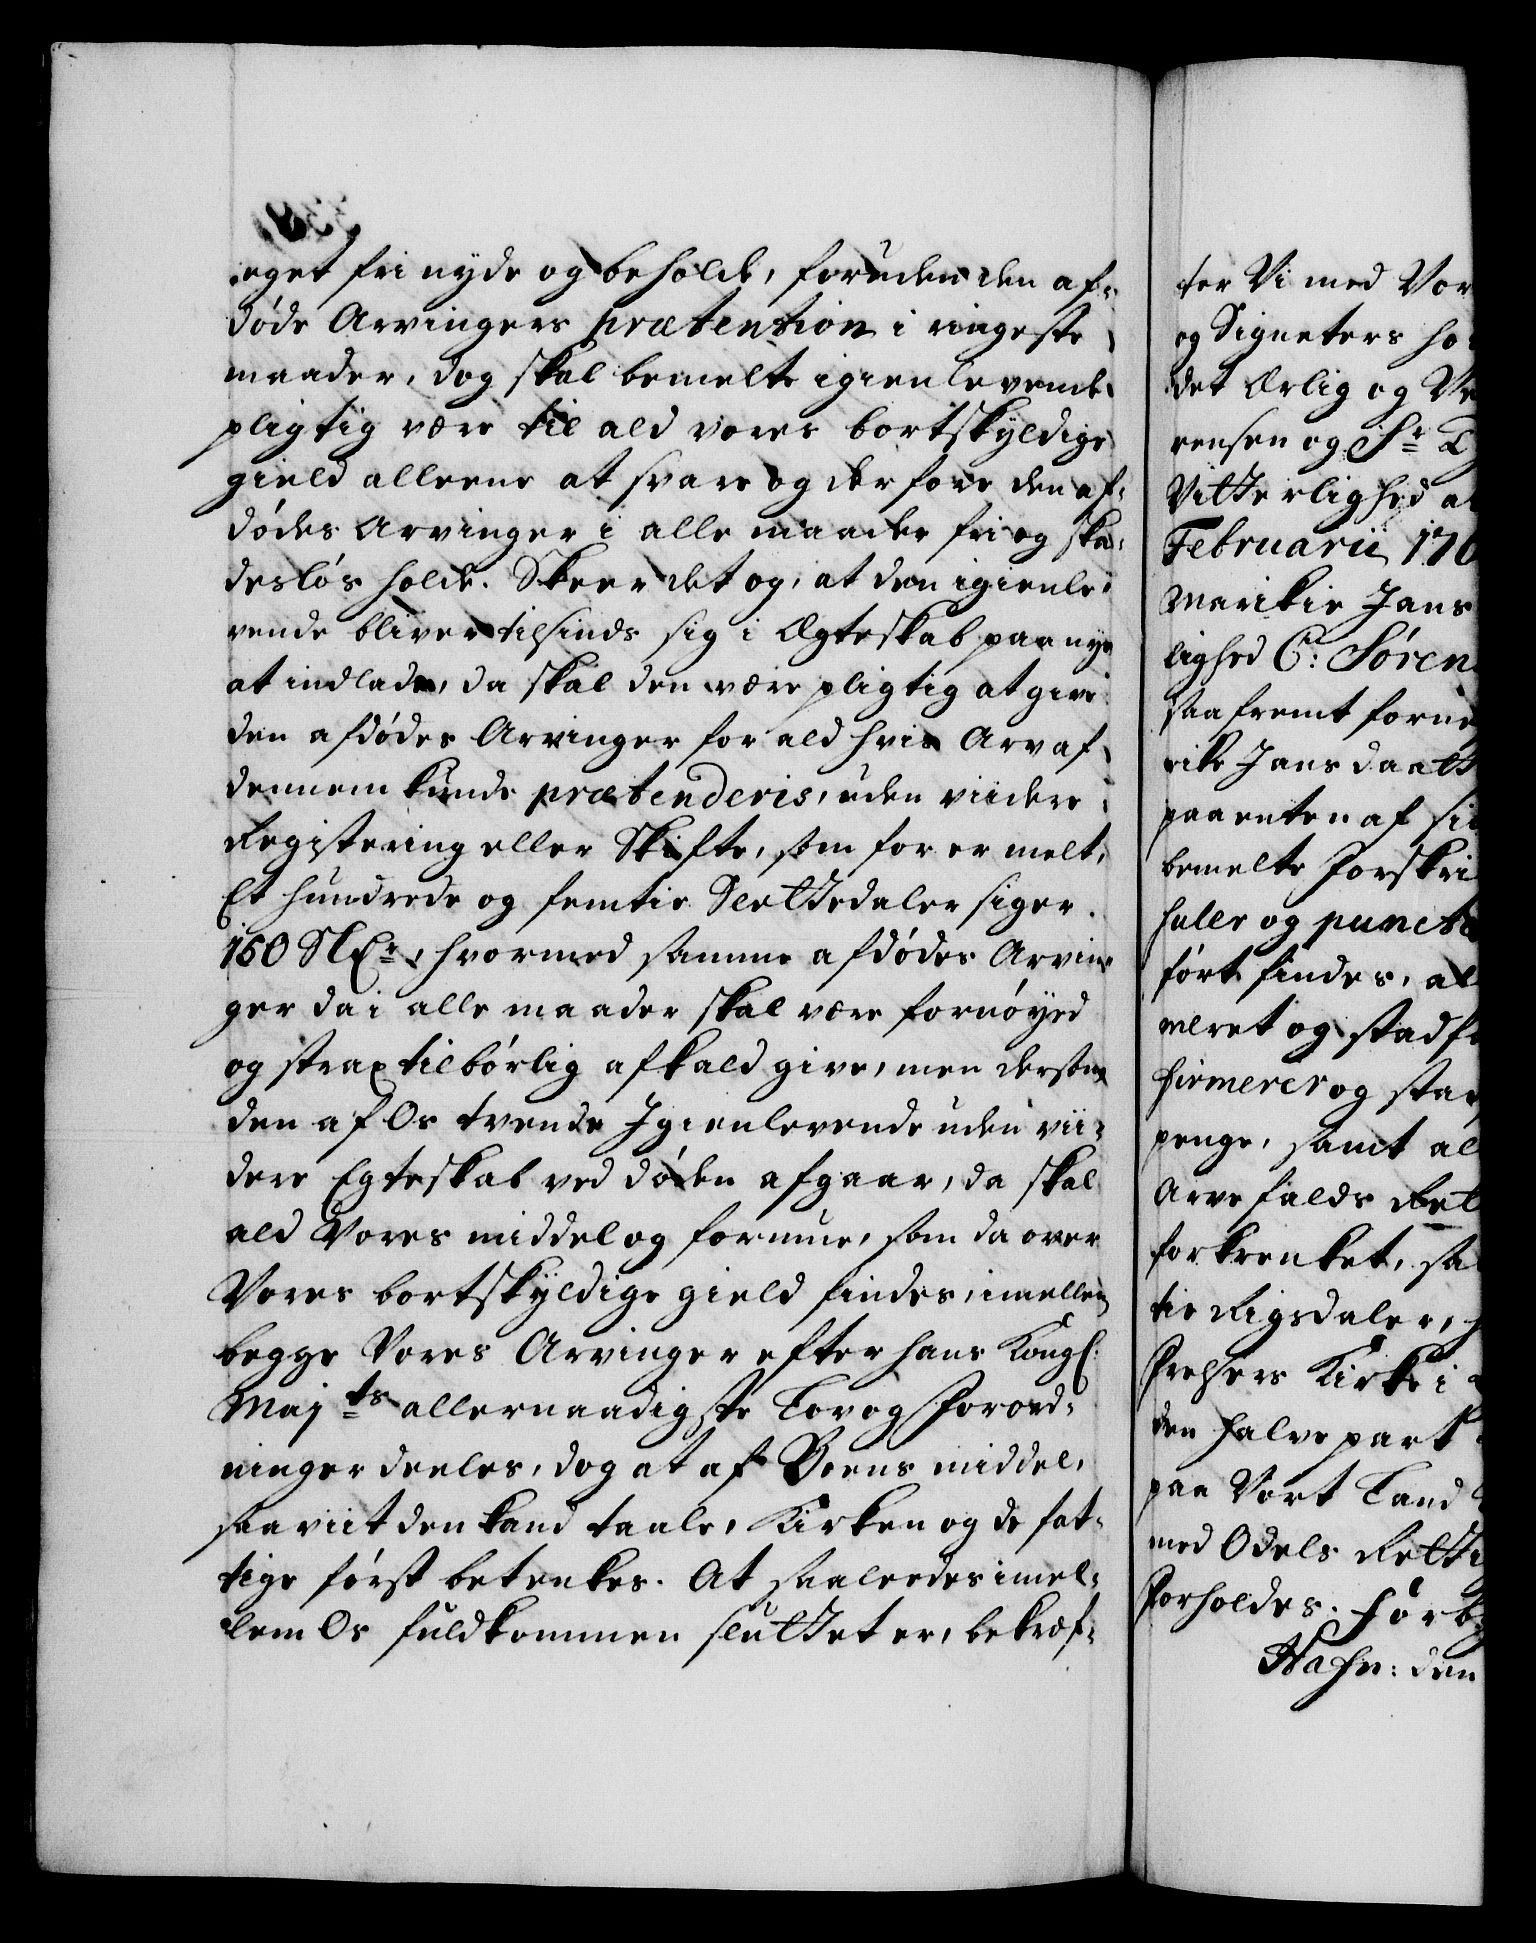 eget fri nyde og beholde, foruden den af-
døde Arvingers prætention i ringeste
maader, dog skal bemelte igienlevende
pligtig være til ald vores bortskyldige
gield alleene at svare og derfore den af-
dødes Arvinger i alle maader fri og ska-
desløs holde. Skeer det og, at den igienle-
vende bliver tilsinds sig i Ægteskab paa nye
at indlade, da skal den være pligtig at give
den afdødes Arvinger for ald hvis Arv af
dennem kunde prætenderis, uden viidere
Registering eller Skifte, som for er melt,
Et hundrede og femtie Slettedaler siger
150 Sldr, hvormed samme afdødes Arvin-
ger da i alle maader skal være fornøyed
og strax tilbørlig afkald give, men dersom
den af Os tvende Igienlevende uden vii-
dere Egteskab ved døden afgaar, da skal
ald Vores middel og formue, som da over
Vores bortskyldige gield findes, imellem
begge Vores Arvinger efter hans Kongl:
Majts allernaadigste Lov og Forord-
ninger deeles, dog at af Boens middel,
saa viit den kand taale, Kirken og de fat-
tige først betenkes. At saaleedes imel-
lem Os fuldkommen sluttet er, bekræf-
ter Vi med Vor
og Signeters
det Ærlig og
rensen og Sr
Vitterlighed
Februarii 170
Marikie Jans
lighed C: Søren
saafremt
rike Jansdaatt
paa enten af
bemelte Forskri
huller og puncte
ført findes, al
meret og stadf
firmerer og sta
penge, samt al
Arvefalds Ret
forkrenket, sa
tie Rigsdaler,
Frelsers Kirke i
den halve part
paa Vort Land
med Odels Rett
Forholdes. Forb
Hafn: den